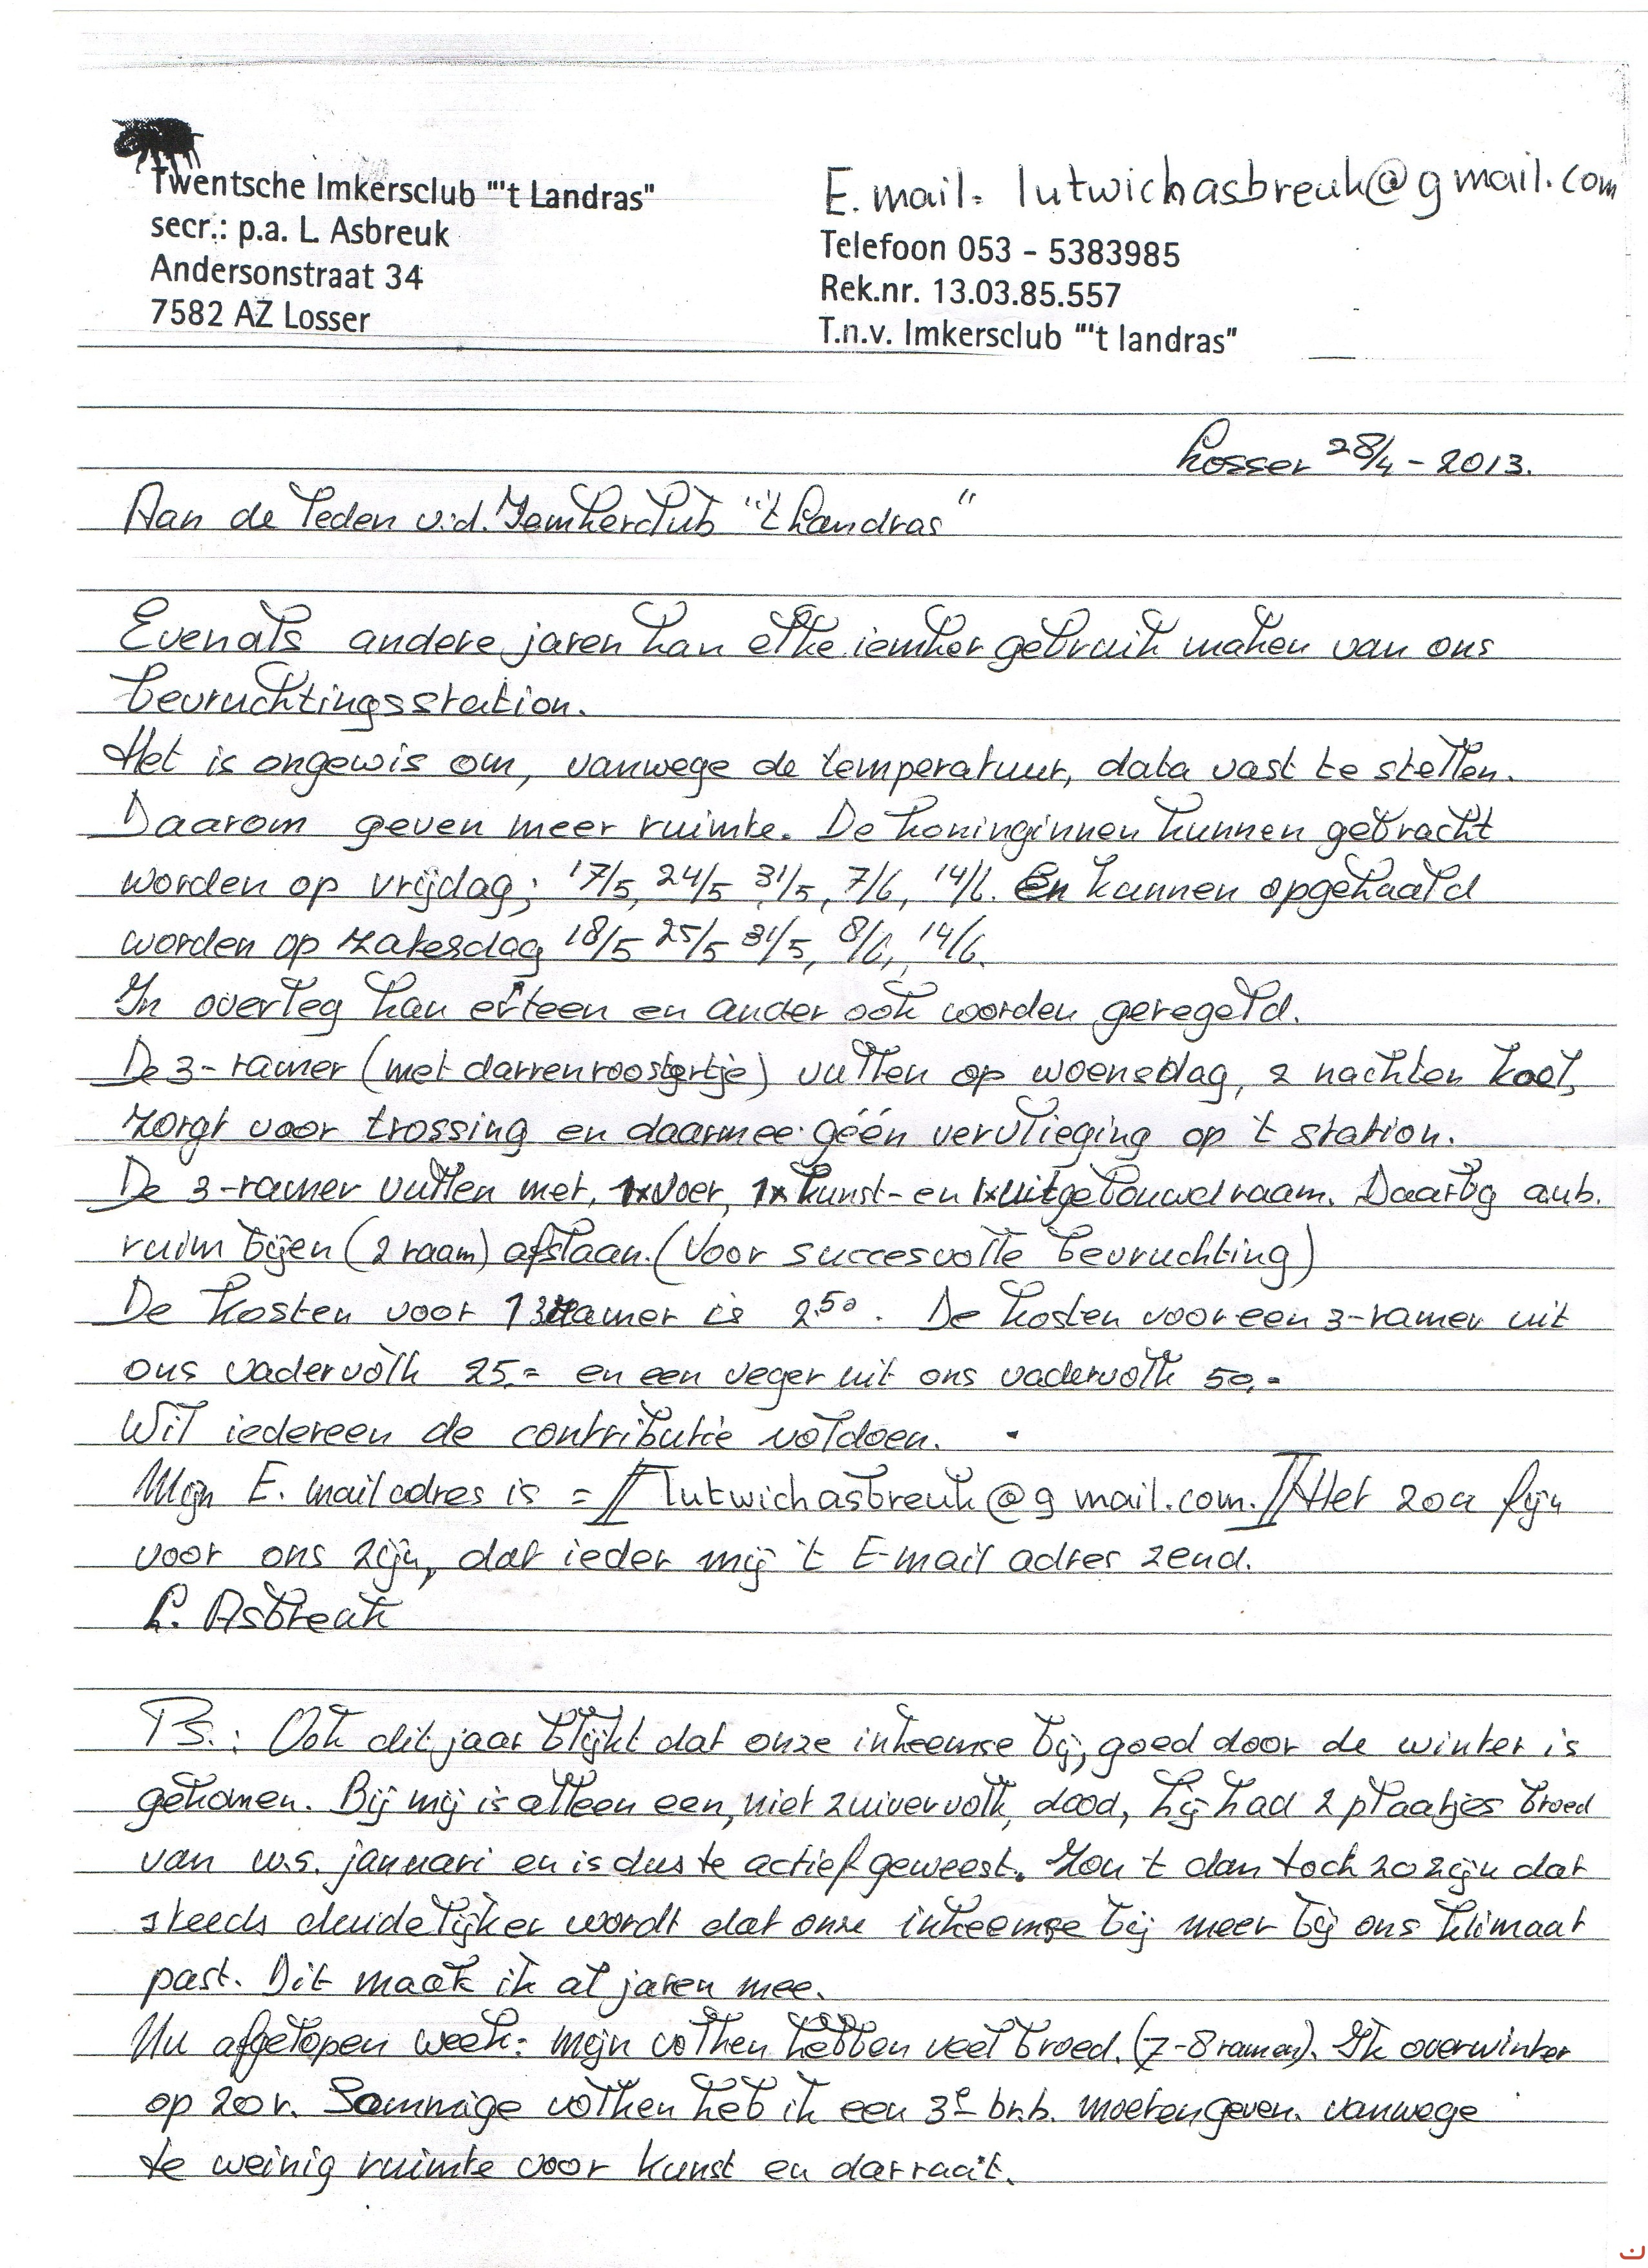 Twentsche Imkersclub "'t Landras"
secr.: p.a. L. Asbreuk
Andersonstraat 34
7582 AZ Losser
E.mail. lutwichasbreuk@gmail.com
Telefoon 053 - 5383985
Rek.nr. 13.03.85.557
T.n.v. Imkersclub "'t landras"
Losser 28/4-2013.
Aan de leden v.d. Iemkerclub "'t Landras"
Evenals andere jaren kan elke iemker gebruik maken van ons
bevruchtingsstation.
Het is ongewis om, vanwege de temperatuur, data vast te stellen.
Daarom geven meer ruimte. De koninginnen kunnen gebracht
worden op vrijdag; 17/5, 24/5 31/5, 7/6, 14/6. En kunnen opgehaald
worden op zatesdag 18/5 25/5 31/5, 8/6, 14/6.
In overleg kan er 't een en ander ook worden geregeld.
De 3-ramer (met darrenroostertje) vullen op woensdag, 2 nachten koel,
zorgt voor trossing en daarmee géén vervlieging op 't station.
De 3-ramer vullen met, 1x voer, 1x kunst- en 1x uitgebouwd raam. Daarbij a.u.b.
ruim bijen (2 raam) afslaan. (Voor succesvolle bevruchting)
De kosten voor 1 3 ramer is 2,50. De kosten voor een 3-ramer uit
ons vadervolk 25,= en een veger uit ons vadervolk 50,-
Wil iedereen de contributie voldoen.
Mijn E. mail adres is = // lutwichasbreuk@gmail.com. // Het zou fijn
voor ons zijn, dat ieder mij 't E-mail adres zend.
L. Asbreuk
P.s.: Ook dit jaar blijkt dat onze inheemse bij, goed door de winter is
gekomen. Bij mij is alleen een, niet zuiver volk, dood, hij had 2 plaatjes broed
van w.s. januari en is dus te actief geweest. Zou 't dan toch zo zijn dat
steeds duidelijker wordt dat onze inheemse bij meer bij ons klimaat
past. Dit maak ik al jaren mee.
Nu afgelopen week: mijn volken hebben veel broed. (7-8 ramen). Ik overwinter
op 20 r. Sommige volken heb ik een 3e br.b. moeten geven. vanwege
te weinig ruimte voor kunst en darraat.